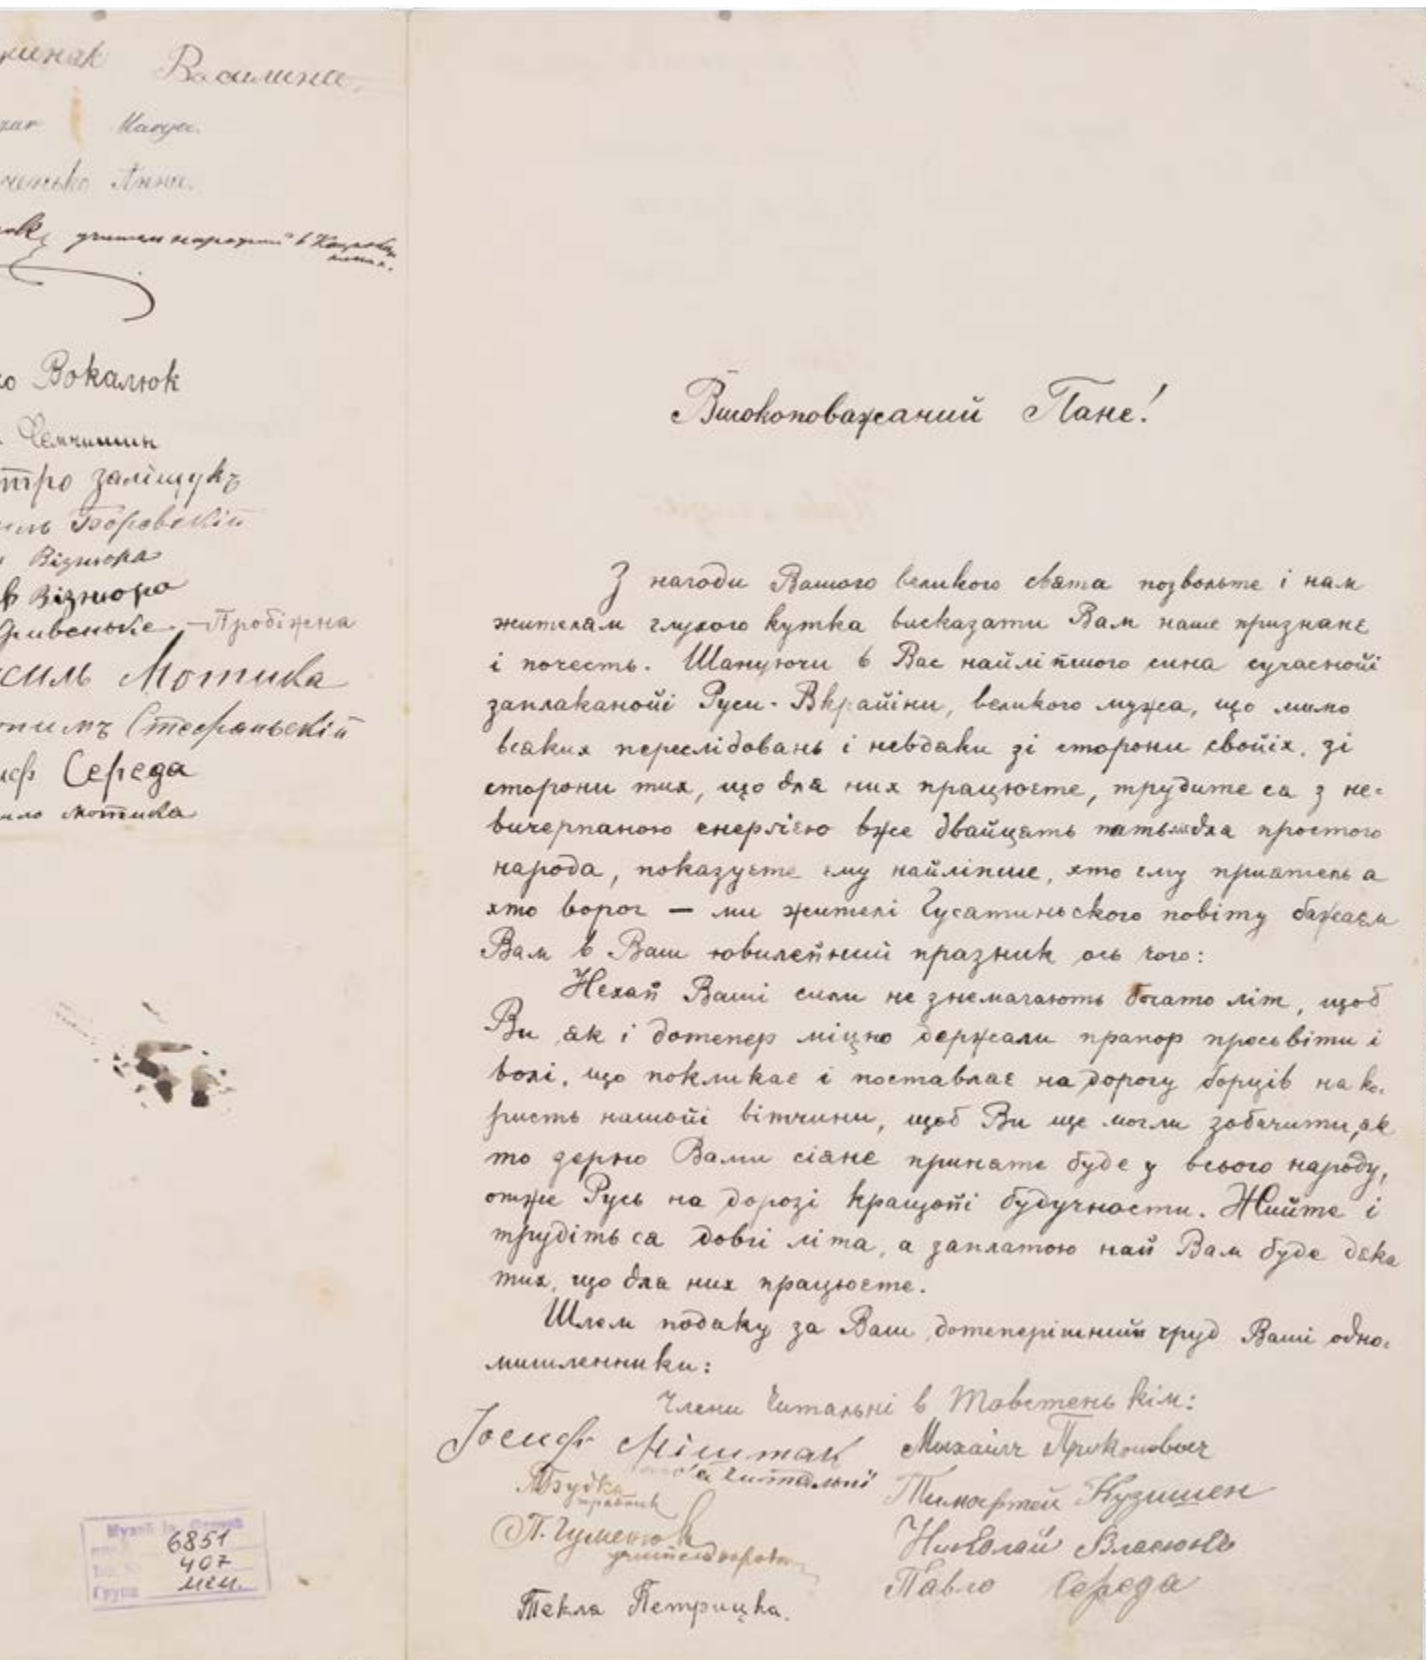 Василина
Маруся.
Анна.
учитель народний в
Вокалюк
Чемчишин
Заліщукъ
Боровский
Візнюра
Візнюра
Гривеньке – Пробіжна
Мотика
Стефаньский
Середа
Мотика
Музей Ів. Франка
6851
407
Група мем.
Високоповажаний Пане!
З нагоди Вашого великого свята позвольте і нам
жителям глухого кутка висказати Вам наше признанє
і почесть. Шануючи в Вас найліпшого сина сучасної
заплаканої Руси-Вкраїни, великого мужа, що мимо
всяких переслідовань і невдаки зі сторони своїх, зі
сторони тих, що для них працюєте, трудите ся з не-
вичерпаною енергією вже двайцять пять для простого
народа, показуєте єму найліпше, хто єму приятель а
хто ворог — ми жителі Гусатиньского повіту бажаєм
Вам в Ваш ювилейний празник ось чого:
Нехай Ваші сили не знемагають богато літ, щоб
Ви як і дотепер міцно держали прапор просьвіти і
волі, що покликає і поставляє на дорогу борців на ко-
ристь нашої вітчини, щоб Ви ще могли зобачити, як
то зерно Вами сіяне приняте буде у всього народу,
отже Русь на дорозі кращої будучности. Жийте і
трудіть ся довгі літа, а заплатою най Вам буде дяка
тих, що для них працюєте.
Шлем подяку за Ваш дотеперішний труд Ваші одно-
мишленники:
Члени Читальні в Товстенькім:
Іосиф Міштак Михайло Прокопович
читальні
Будка Тимофтей Кузишен
П. Гуменюк Николай Власюк
Павло Середа
Текла Петрицка.